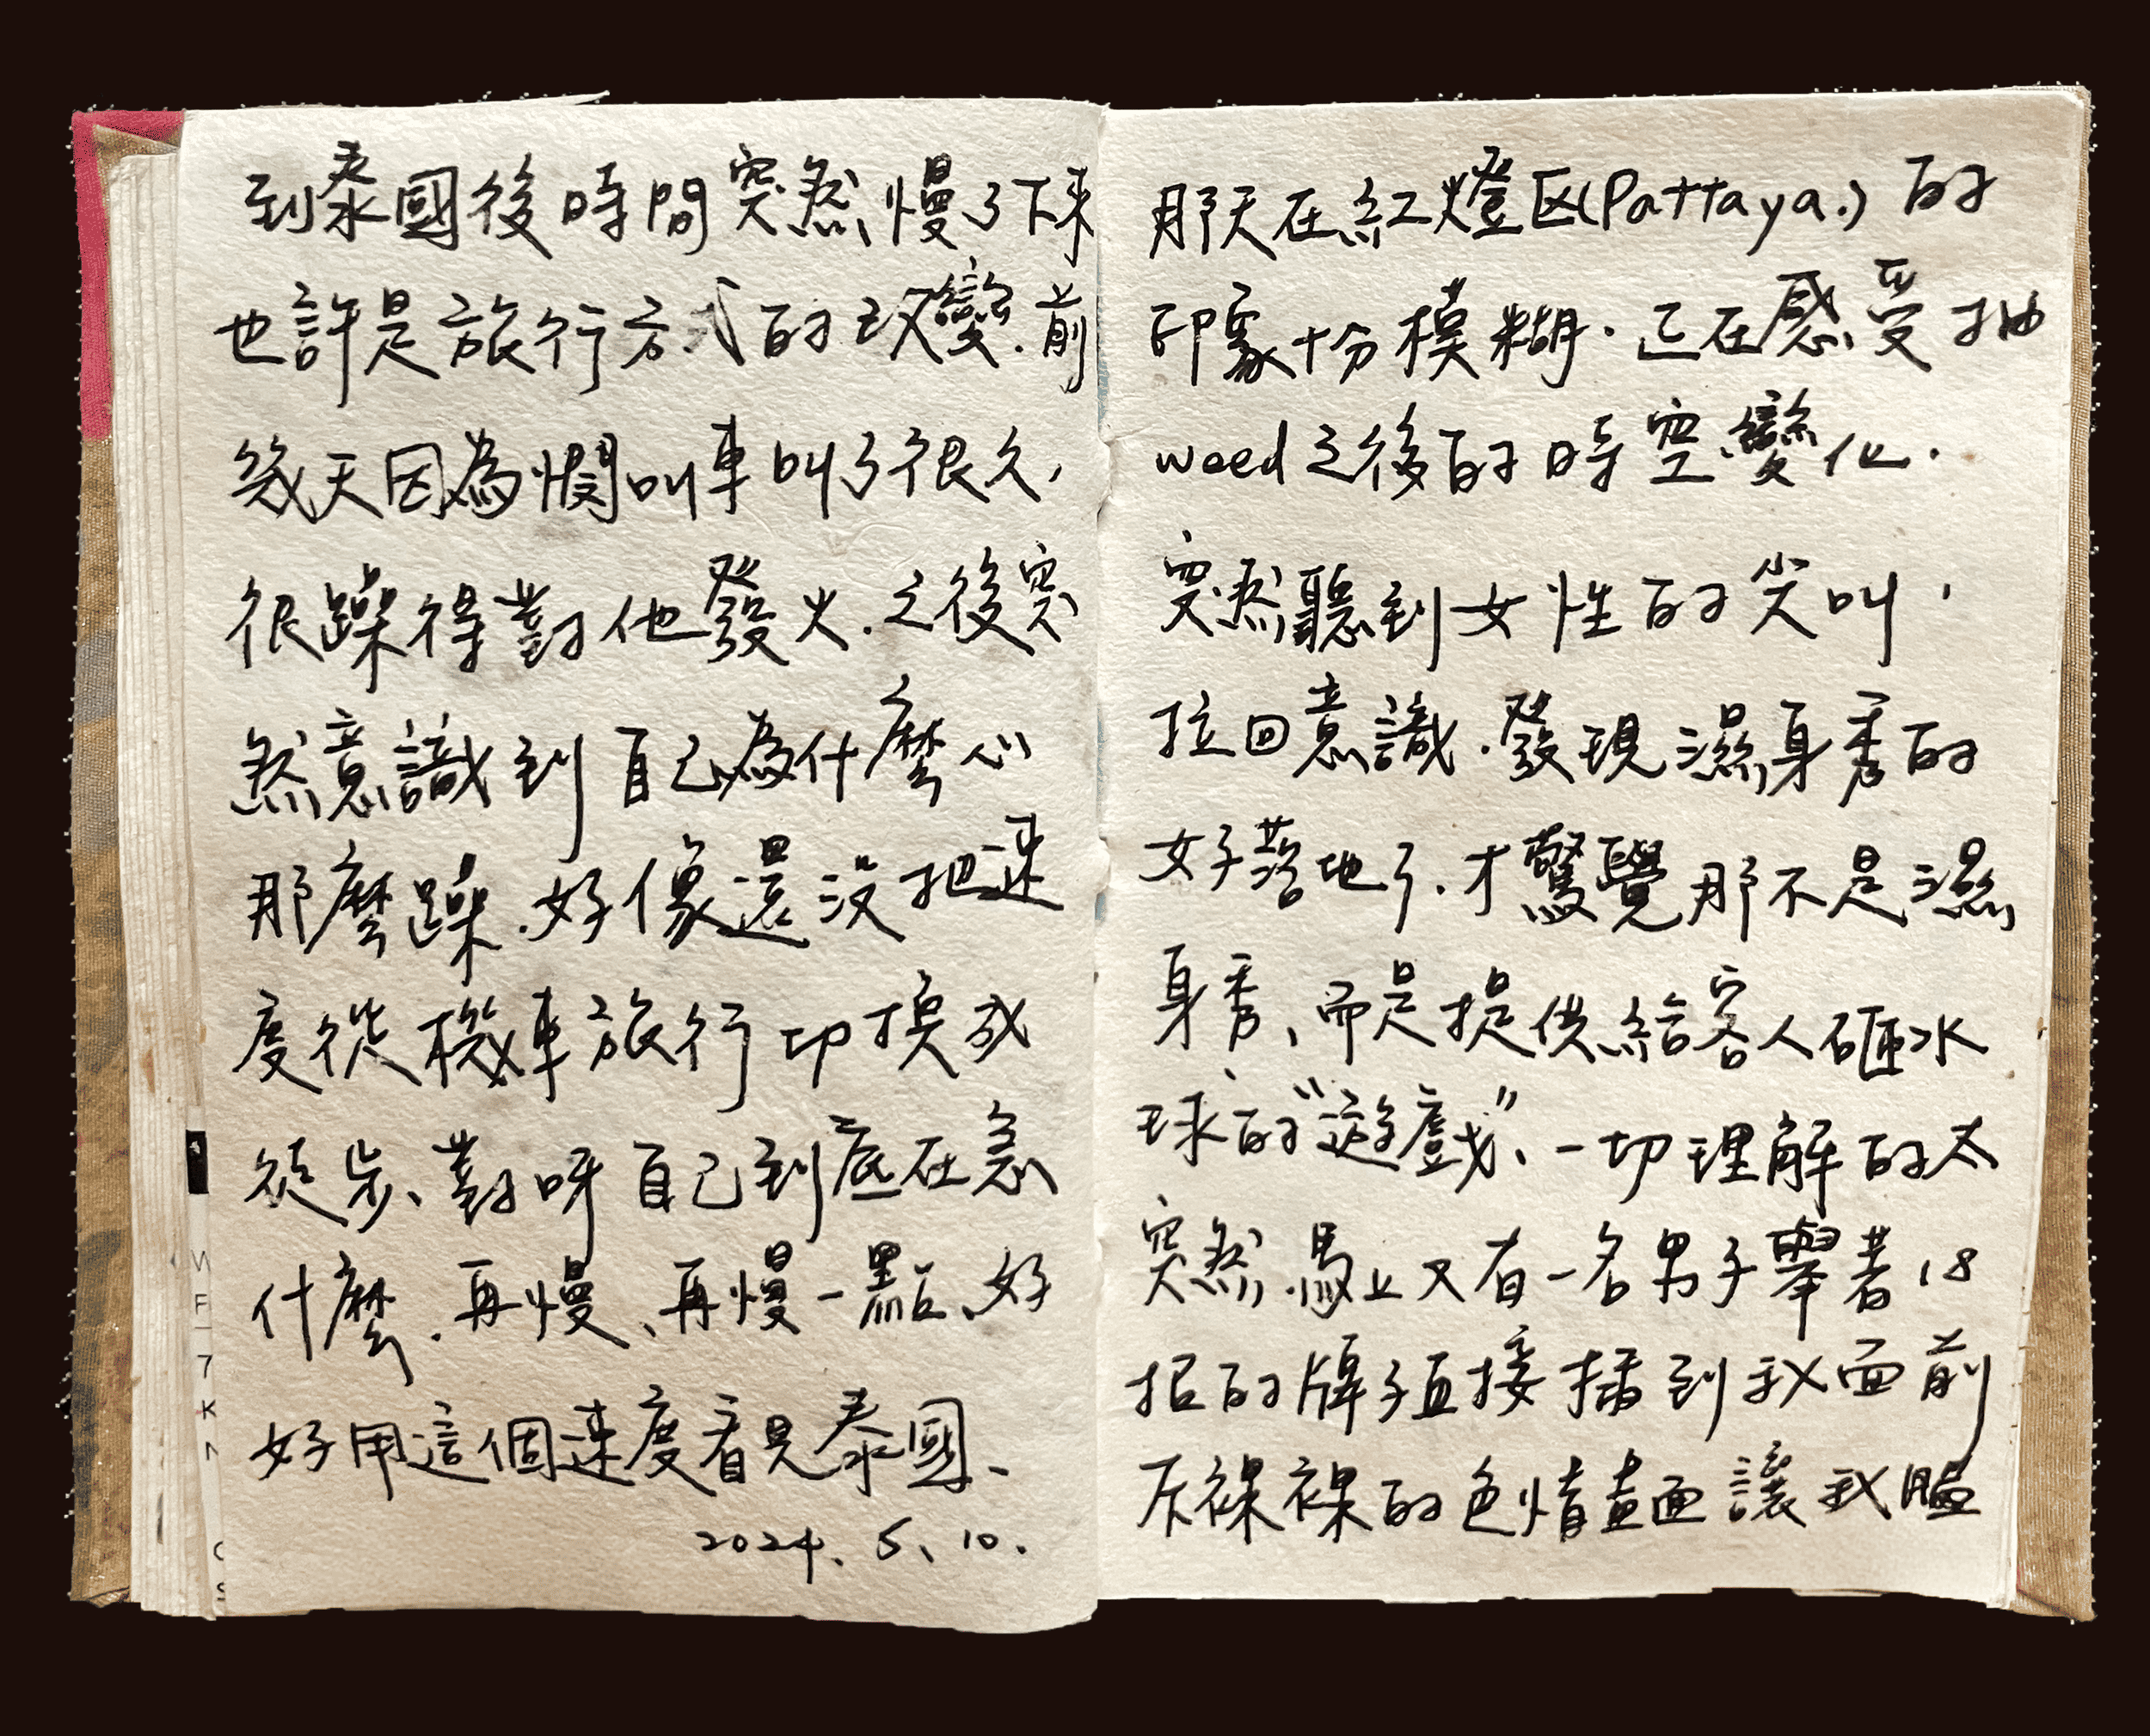 到泰國後時間突然慢了下來
也許是旅行方式的改變.前
幾天因為憫叫車叫了很久,
很躁得對他發火.之後突
然意識到自己為什麼心
那麼躁.好像還沒把速
度從機車旅行切換成
徒步、對呀自己到底在急
什麼.再慢、再慢一點、好
好用這個速度看見泰國、
2024. 5. 10.
那天在紅燈区(Pattaya.)的
印象十分模糊.正在感受抽
weed之後的時空變化.
突然聽到女性的尖叫,
拉回意識.發現濕身秀的
女子落地了.才驚覺那不是濕
身秀、而是提供給客人砸水
球的"遊戲"、一切理解的太
突然.馬上又有一名男子舉著18
招的牌子直接插到我面前
斥裸裸的色情畫面讓我腦
W
F
7
K